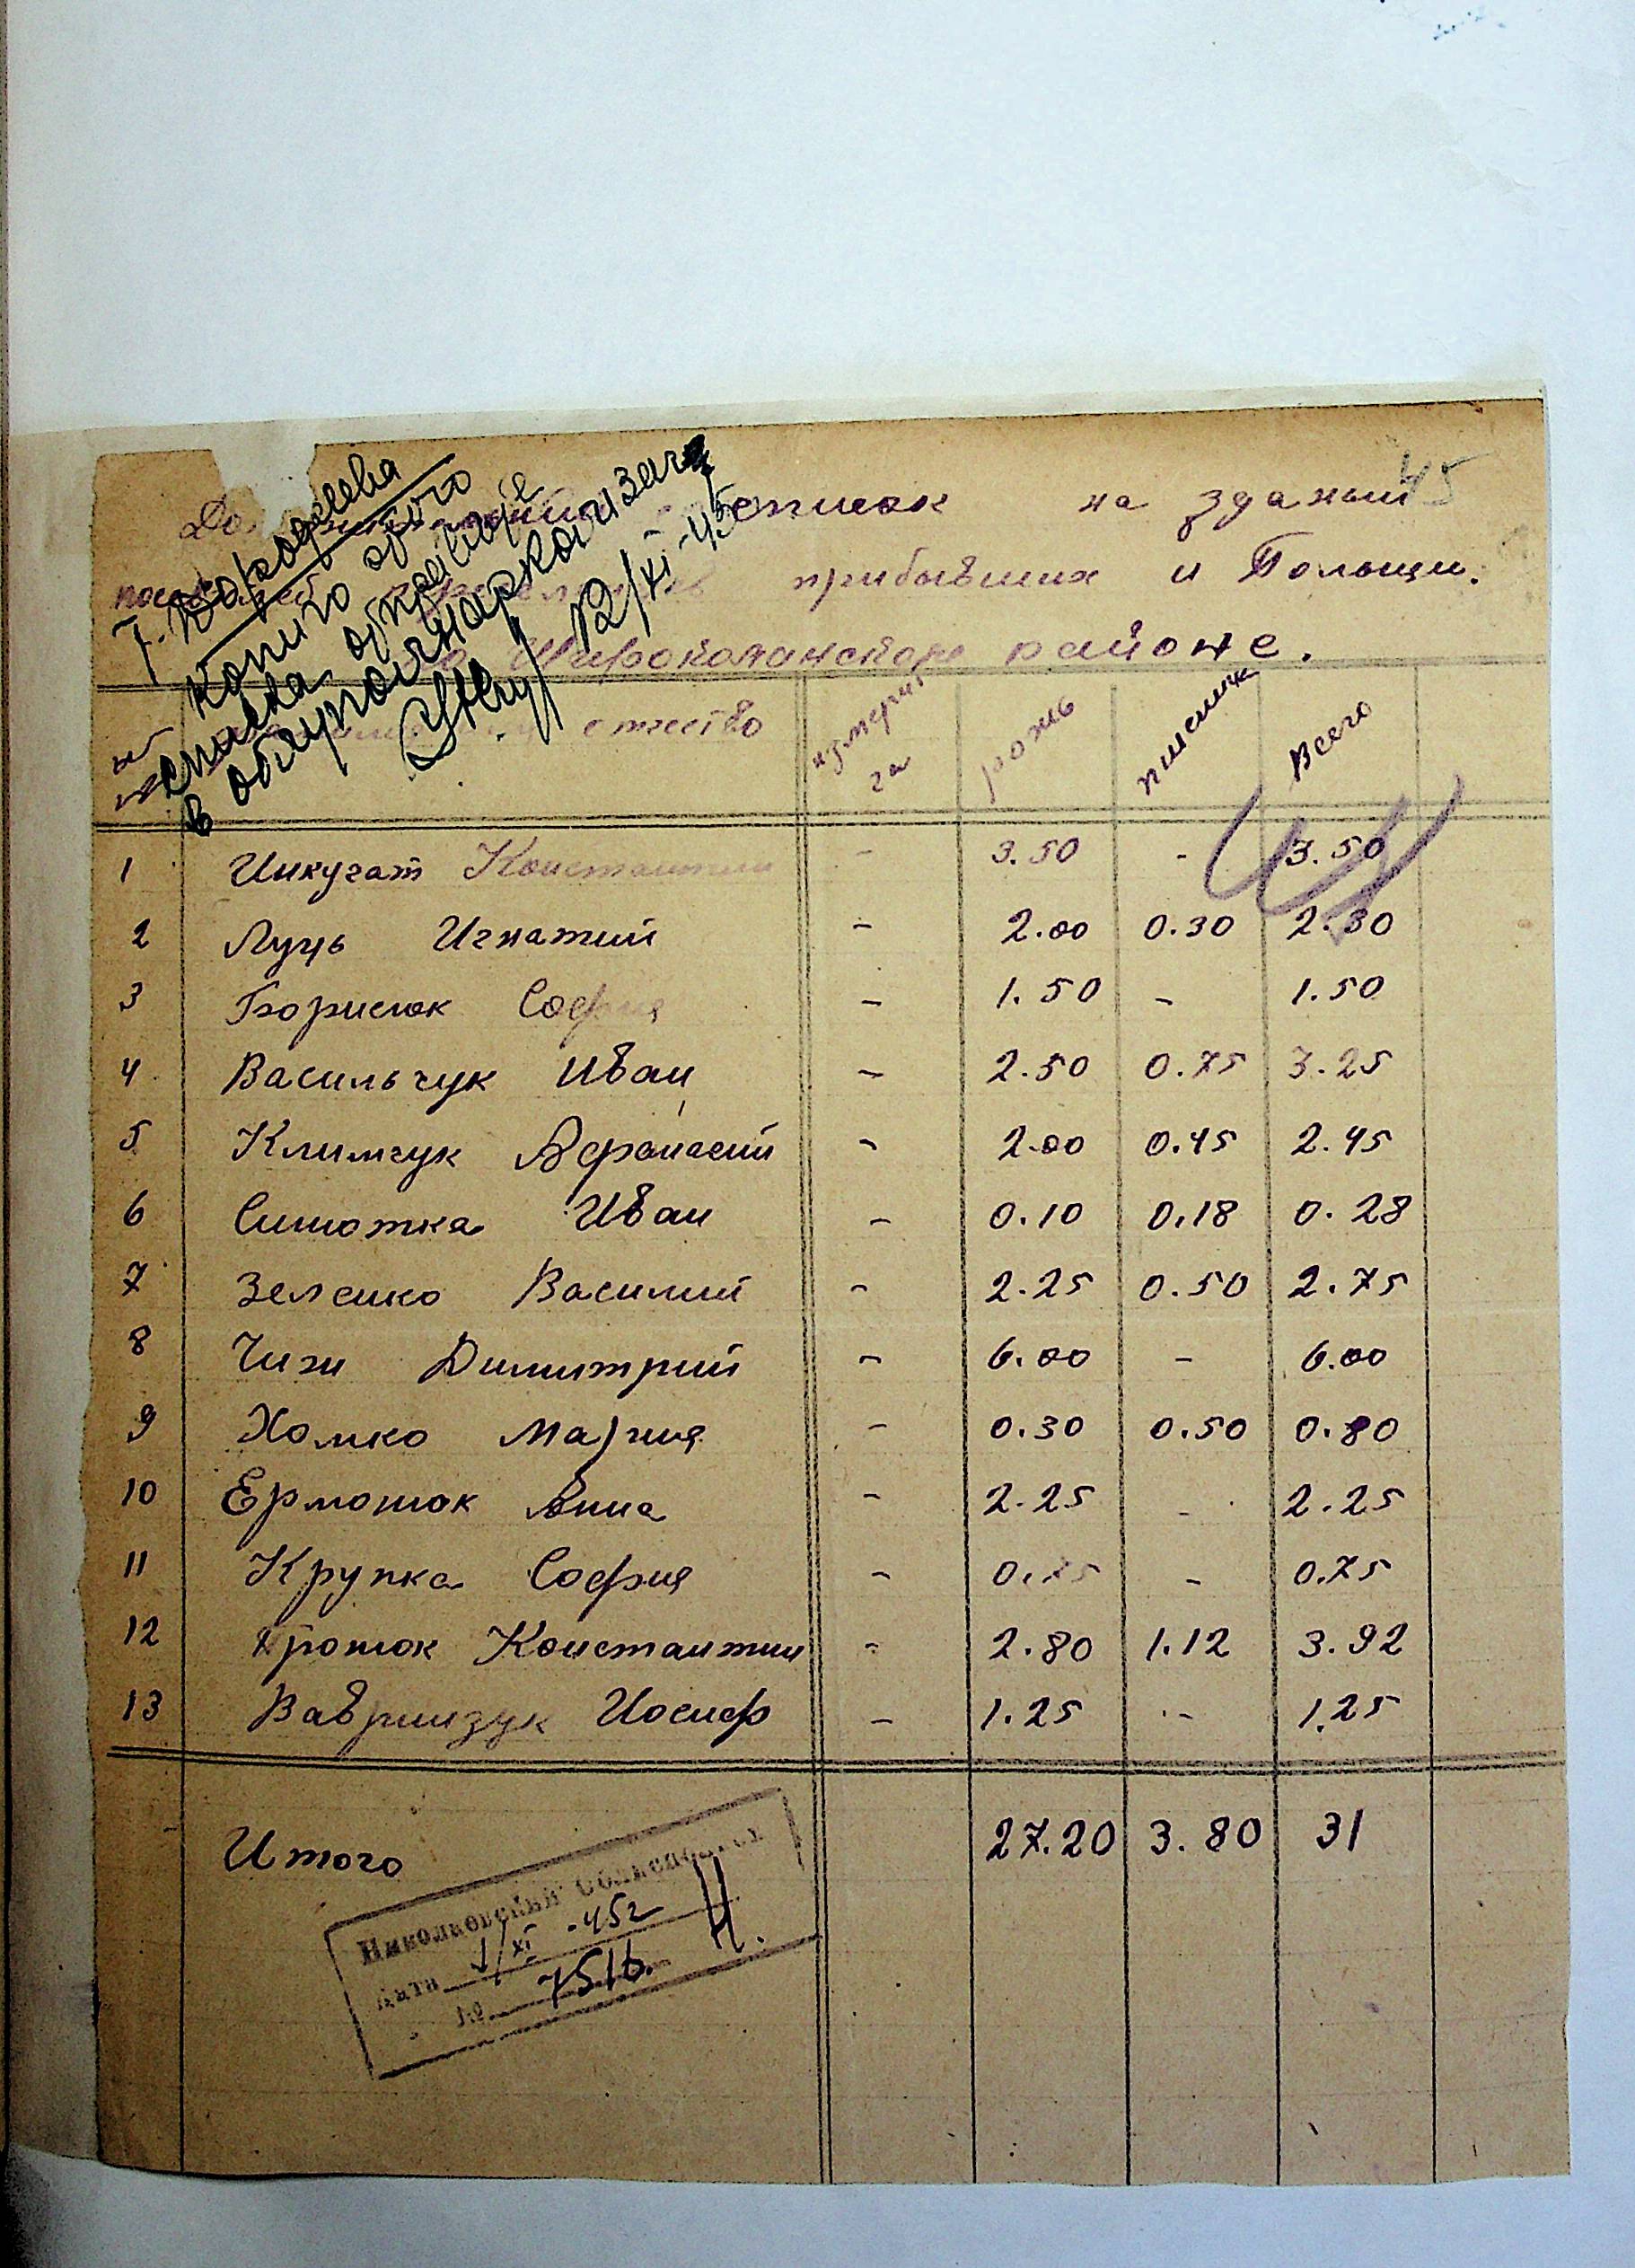 45
список на зданый
прибывших и Польщи.
Широколанском районе.
Т. Коробеева
копию этого
списка отправьте
в облуполнаркомзаг
12/XI-45
отчество га рожь пшениця Всего
1 Инкугат Константин - 3.50 - 3.50
2 Луць Игнатий - 2.00 0.30 2.30
3 Борисюк София - 1.50 - 1.50
4 Васильчук Иван - 2.50 0.75 3.25
5 Климчук Афанасий - 2.00 0.45 2.45
6 Симотка Иван - 0.10 0.18 0.28
7 Зеленко Василий - 2.25 0.50 2.75
8 Чижи Димитрий - 6.00 - 6.00
9 Хомко Мария - 0.30 0.50 0.80
10 Ермошок Анна - 2.25 - 2.25
11 Крупка София - 0.75 - 0.75
12 Хронюк Константин - 2.80 1.12 3.92
13 Вавринзук Иосиф - 1.25 - 1.25
Итого 27.20 3.80 31
Николаевский
Дата 1/XI -45г
№ 7516. Н.